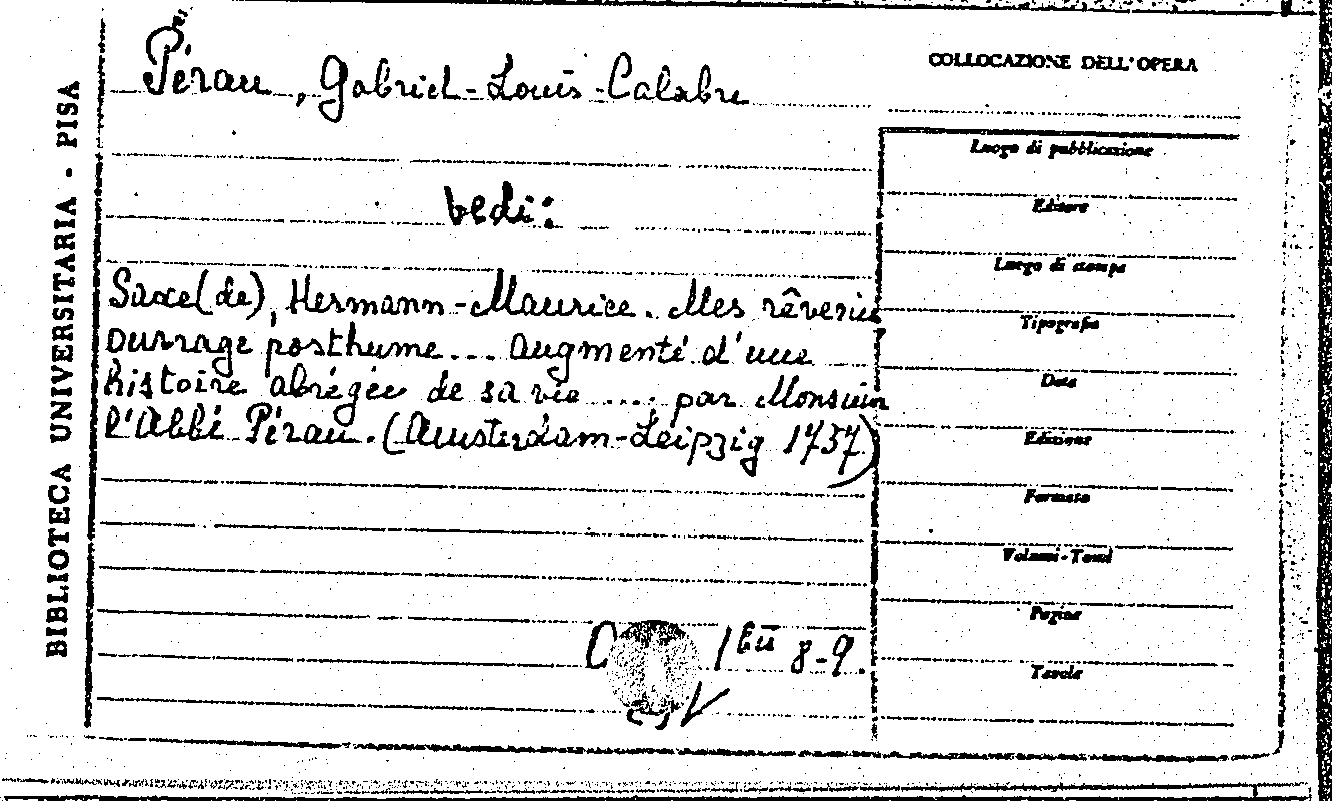 BIBLIOTECA UNIVERSITARIA - PISA
Pérau, Gabriel-Louis-Calabre
vedi:
Saxe (de), Hermann-Maurice. Mes rêveries,
ouvrage posthume... augmenté d'une
histoire abrégée de sa vie .... par Monsieur
l'Abbé Pérau. (Amsterdam-Leipzig 1757)
C 8-9.
COLLOCAZIONE DELL'OPERA
Luogo di pubblicazione
Editore
Luogo di stampa
Tipografia
Data
Edizione
Formato
Volumi-Tomi
Pagine
Tavole